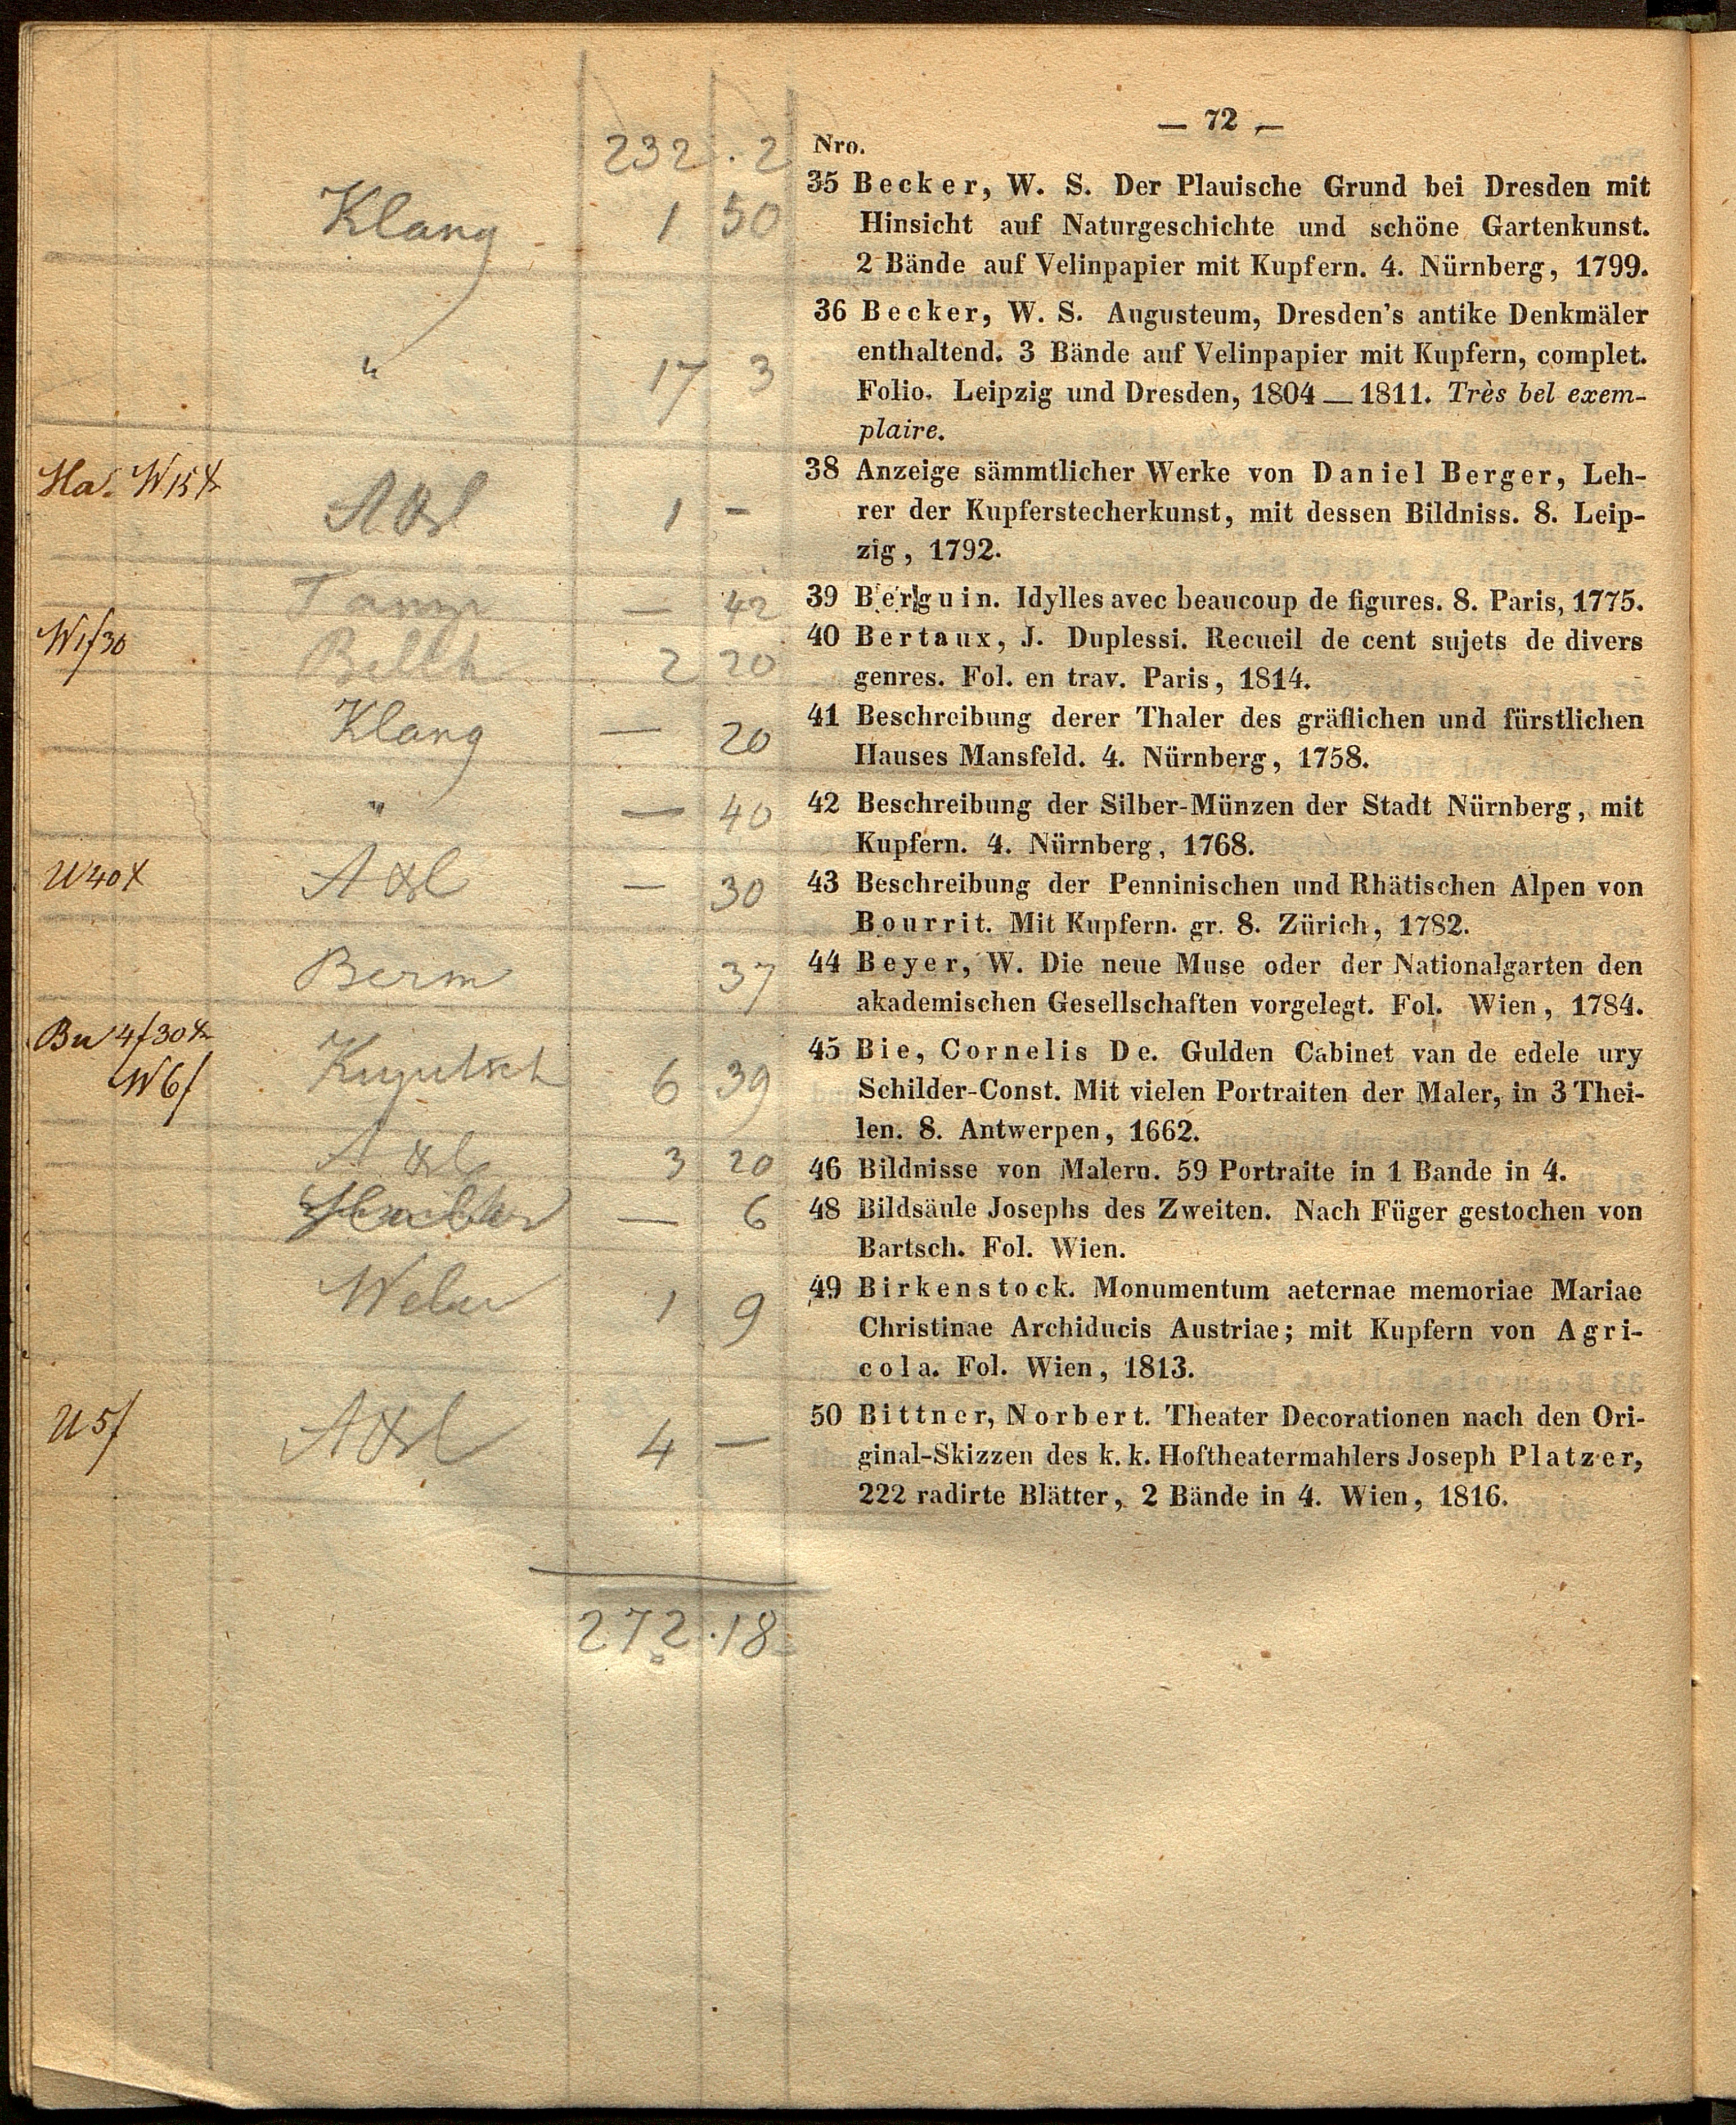 — 72 —
232 . 2
Nro.
Klang 1 50
35 Becker, W. S. Der Plauische Grund bei Dresden mit
Hinsicht auf Naturgeschichte und schöne Gartenkunst.
2 Bände auf Velinpapier mit Kupfern. 4. Nürnberg, 1799.
" 17 3
36 Becker, W. S. Augusteum, Dresden's antike Denkmäler
enthaltend. 3 Bände auf Velinpapier mit Kupfern, complet.
Folio. Leipzig und Dresden, 1804 — 1811. Très bel exem-
plaire.
Axl 1 -
38 Anzeige sämmtlicher Werke von Daniel Berger, Leh-
rer der Kupferstecherkunst, mit dessen Bildniss. 8. Leip-
zig, 1792.
— 42
39 Berguin. Idylles avec beaucoup de figures. 8. Paris, 1775.
W1/30 2 20
40 Bertaux, J. Duplessi. Recueil de cent sujets de divers
genres. Fol. en trav. Paris, 1814.
Klang — 20
41 Beschreibung derer Thaler des gräflichen und fürstlichen
Hauses Mansfeld. 4. Nürnberg, 1758.
" — 40
42 Beschreibung der Silber-Münzen der Stadt Nürnberg, mit
Kupfern. 4. Nürnberg, 1768.
Axl — 30
43 Beschreibung der Penninischen und Rhätischen Alpen von
Bourrit. Mit Kupfern. gr. 8. Zürich, 1782.
Berm 37
44 Beyer, W. Die neue Muse oder der Nationalgarten den
akademischen Gesellschaften vorgelegt. Fol. Wien, 1784.
W6/ 6 39
45 Bie, Cornelis De. Gulden Cabinet van de edele ury
Schilder-Const. Mit vielen Portraiten der Maler, in 3 Thei-
len. 8. Antwerpen, 1662.
Axl 3 20
46 Bildnisse von Malern. 59 Portraite in 1 Bande in 4.
— 6
48 Bildsäule Josephs des Zweiten. Nach Füger gestochen von
Bartsch. Fol. Wien.
1 9
49 Birkenstock. Monumentum aeternae memoriae Mariae
Christinae Archiducis Austriae; mit Kupfern von Agri-
cola. Fol. Wien, 1813.
Axl 4 —
50 Bittner, Norbert. Theater Decorationen nach den Ori-
ginal-Skizzen des k. k. Hoftheatermahlers Joseph Platzer,
222 radirte Blätter, 2 Bände in 4. Wien, 1816.
272 . 18